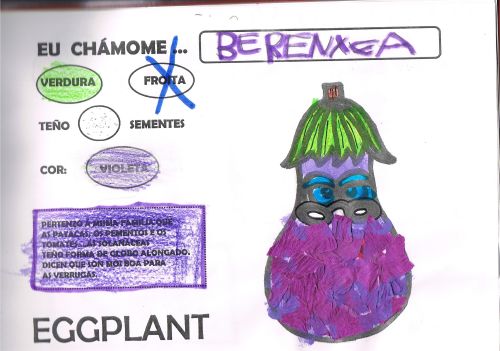 EU CHÁMOME ... BERENXEA
VERDURA FROITA
TEÑO SEMENTES
COR: VIOLETA
PERTENZO Á MESMA FAMILIA QUE
AS PATACAS, OS PEMENTOS E OS
TOMATES....AS SOLANÁCEAS
TEÑO FORMA DE GLOBO ALONGADO.
DICEN QUE SON MOI BOA PARA
AS VERRUGAS.
EGGPLANT